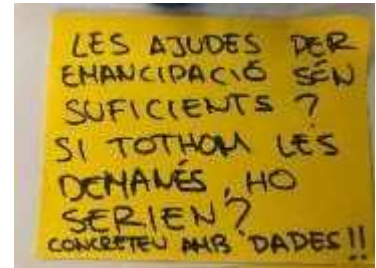 LES AJUDES PER
EMANCIPACIÓ SÓN
SUFICIENTS?
SI TOTHOM LES
DEMANÉS, HO
SERIEN?
CONCRETEU AMB DADES!!